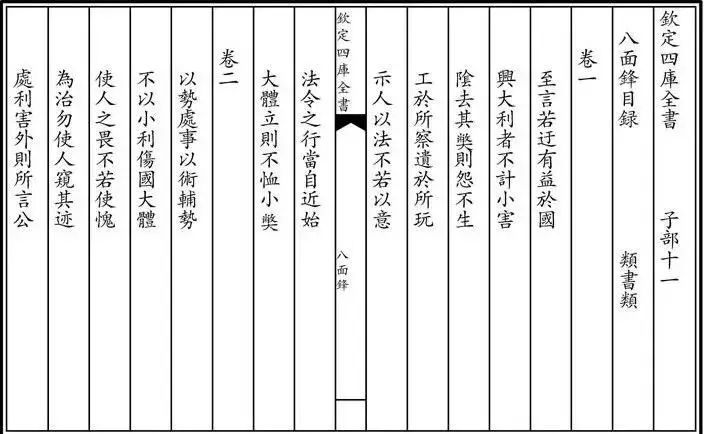 欽定四庫全書 子部十一
八面鋒目録 類書類
卷一
至言若迂有益於國
興大利者不計小害
陰去其獘則怨不生
工於所察遺於所玩
示人以法不若以意
欽定四庫全書 八面鋒
法令之行當自近始
大體立則不恤小獘
卷二
以勢處事以術輔勢
不以小利傷國大體
使人之畏不若使愧
為治勿使人窺其迹
處利害外則所言公